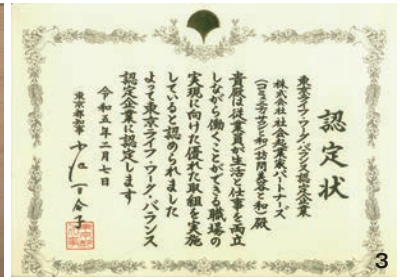 認定状
東京ライフ・ワーク・バランス認定企業
株式会社社会起業家パートナーズ
貴殿は従業員が生活と仕事を両立
しながら働くことができる職場の
実現に向けた優れた取組を実施
していると認められました
よって東京ライフ・ワーク・バランス
認定企業に認定します
令和五年二月七日
東京都知事 小池百合子
3